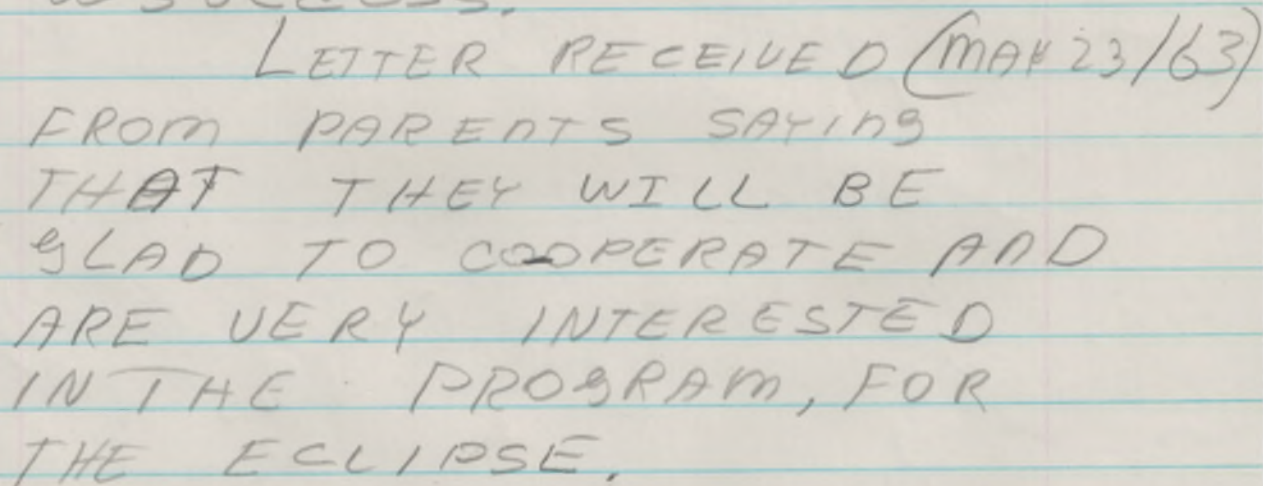 LETTER RECEIVED (MAR 23/63)
FROM PARENTS SAYING
THAT THEY WILL BE
GLAD TO COOPERATE AND
ARE VERY INTERESTED
IN THE PROGRAM, FOR
THE ECLIPSE.